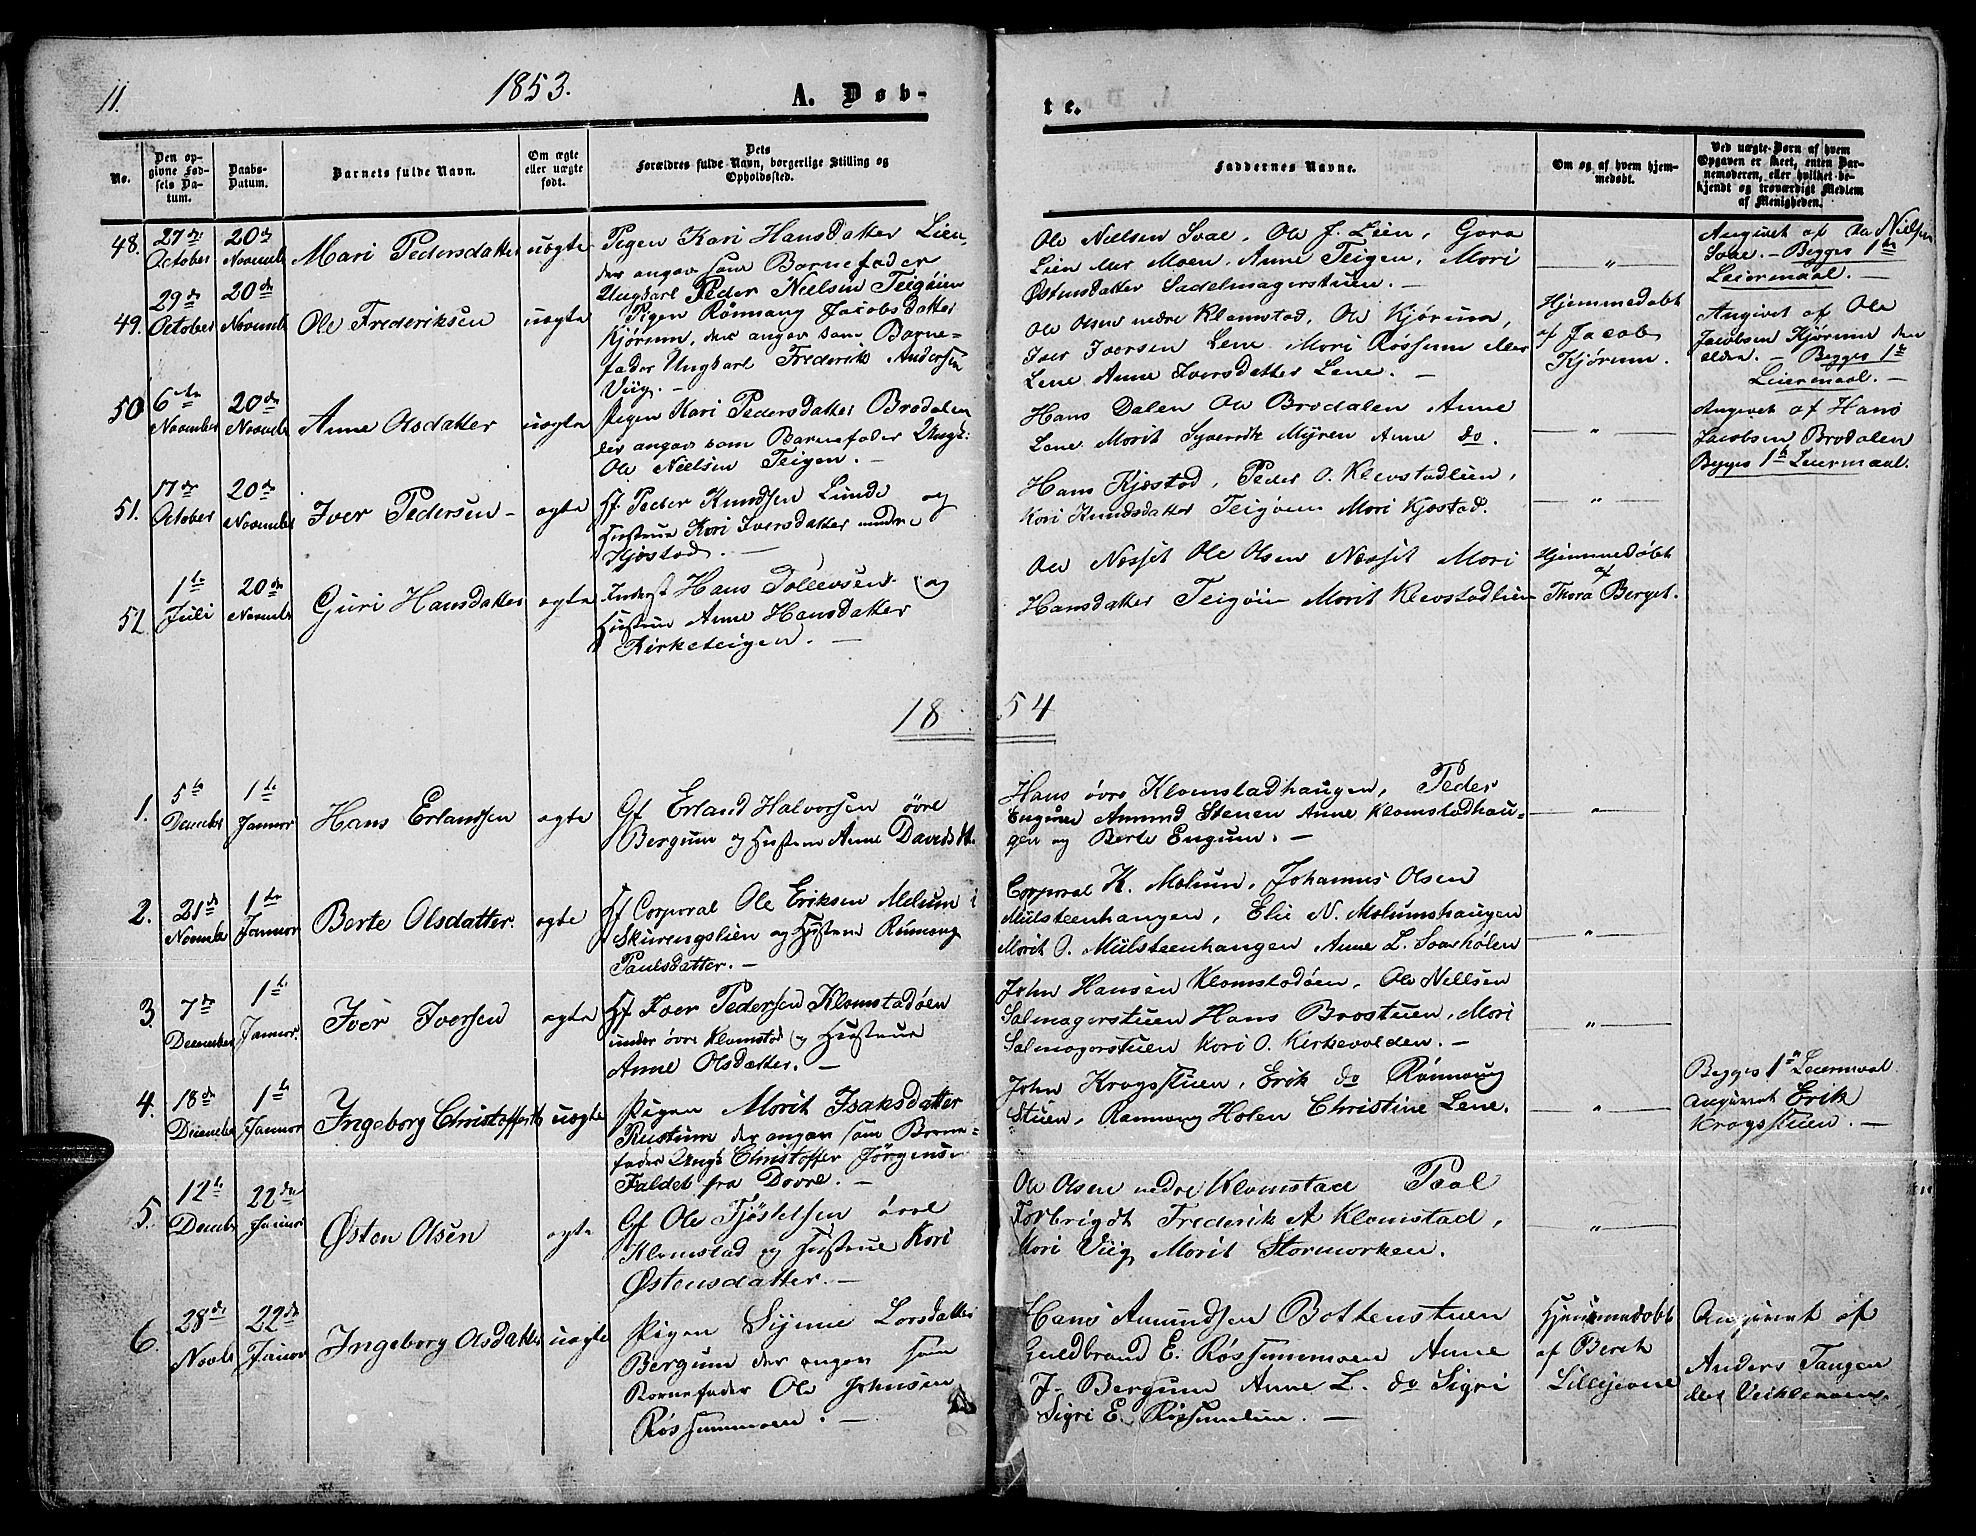 11.
1853.
A. Døb-
te.
No.
Den op-
givne Fød-
sels Da-
tum.
Daabs-
Datum.
Barnets fulde Navn.
Om ægte
eller uægte
født.
Dets
Forældres fulde Navn, borgerlige Stilling og
Opholdssted.
Faddernes Navne.
Om og af hvem hjem-
medøbt.
Ved uægte Børn af hvem
Opgaven er skeet, enten Bar-
nemoderen, eller hvilket be-
kjendt og troværdigt Medlem
af Menigheden.
48.
27de
October
20de
Novemb
Mari Pedersdatter
uægte
Pigen Kari Hansdatter Lien,
der angav som Barnefader
Ungkarl Peder Nielsen Teigøien
Ole Nielsen Svae, Ole J. Lien, Goro
Lien Mer Moen, Anne Teigen, Mari
Østensdatter Sadelmagerstuen. —
"
Angivet af Ole Nielsen
Svae. — Begges 1te
Leiermaal. —
49.
29de
October
20de
Novemb
Ole Frederiksen
uægte
Pigen Rønnaug Jacobsdatter
Kjørum, der angav som Barne-
fader Ungkarl Frederik Andersen
Viig. —
Ole Olsen nedre Klomstad, Ole Kjørum,
Iver Iversen Lene Mari Rossum
Lene Anne Iversdatter Lene. —
Hjemmedøbt
af Jacob
Kjørum.
Angivet af Ole
Jacobsen Kjørum den
eldre. — Begges 1te
Leiermaal. —
50
6te
November
20de
Novemb
Anne Olsdatter
uægte
Pigen Kari Pedersdatter Brodalen
der angav som Barnefader Ungk
Ole Nielsen Teigen. —
Hans Dalen Ole Brodalen Anne
Lene Marit Myren Anne do.
"
Angivet af Hans
Jacobsen Brodalen
Begges 1te Leiermaal.
51.
17de
October
20de
November
Iver Pedersen
ægte
Hf. Peder Knudsen Lunde og
Hustrue Kari Iversdatter under
Kjøstad. —
Hans Kjøstad, Peder O. Klevstadlien,
Kari Knudsdatter Teigøien Mari Kjøstad.
"
52
1te
Juli
20de
Novemb
Guri Hansdatter
ægte
Inderst Hans Tollevsen og
Hustrue Anne Hansdatter
Kirketeigen. —
Ole Nesset Ole Olsen Nesset Mari
Hansdatter Teigøien Marit Klevstadlien
Hjemmedøbt
af
Thora Berget.
1854
1.
5te
December
1te
Januar
Hans Erlandsen
ægte
Gf Erland Halvorsen øvre
Bergum og Hustrue Anne Davidsdt.
Hans øvre Klomstadhaugen, Peder
Engum Amund Stenen Anne Klomstadhau-
gen og Berte Engum. —
"
2.
21de
Novemb
1te
Januar
Berte Olsdatter.
ægte
Hf Corporal Ole Eriksen Melum i
Skurengslien og Hustrue Rønnaug
Paulsdatter. —
Corporal K. Melum, Johannes Olsen
Mulsteenhaugen, Elie N. Melumshaugen
Marit O. Mulsteenhaugen Anne L. Svarhølen
"
3.
7de
December
1te
Januar.
Iver Iversen
ægte
Hf Iver Pedersen Klomstadøen
under øvre Klomstad og Hustrue
Anne Olsdatter. —
John Hansen Klomstadøen, Ole Nielsen
Salmagerstuen Hans Brostuen, Mari
Salmagerstuen Kari O. Kirkevolden. —
"
4.
18de
Decemb
1te
Januar
Ingeborg Christoffersdt
uægte
Pigen Marit Isaksdatter
Rustum der angav som Barne-
fader Ungk Christoffer Jørgensen
Faldet fra Dovre. —
John Krogstuen, Erik do Rønnaug
Stuen, Rønnaug Holen Christine Lene.
"
Begges 1te Leiermaal
angivet Erik
Krogstuen. —
5.
12te
Decemb
22de
Januar
Østen Olsen
ægte
Gf Ole Tjøstelsen øvre
Klomstad og Hustrue Kari
Østensdatter. —
Ole Olsen nedre Klomstad Paal
Forbrigdt Frederik A Klomstad,
Mari Viig, Marit Stormorken.
"
6.
28de
Novbr
22de
Januar
Ingeborg Olsdatter
uægte
Pigen Signe Larsdatter
Bergum der angav som
Barnefader Ole Johnsen
Røssummoen. —
Hans Amundsen Bottenstuen
Guldbrand E. Røssummoen Anne
J. Bergum Anne L. do Sigri
Sigri E. Røssumlien. —
Hjemmedøbt
af Berit
Lillejevne
Angivet af
Anders Tangen